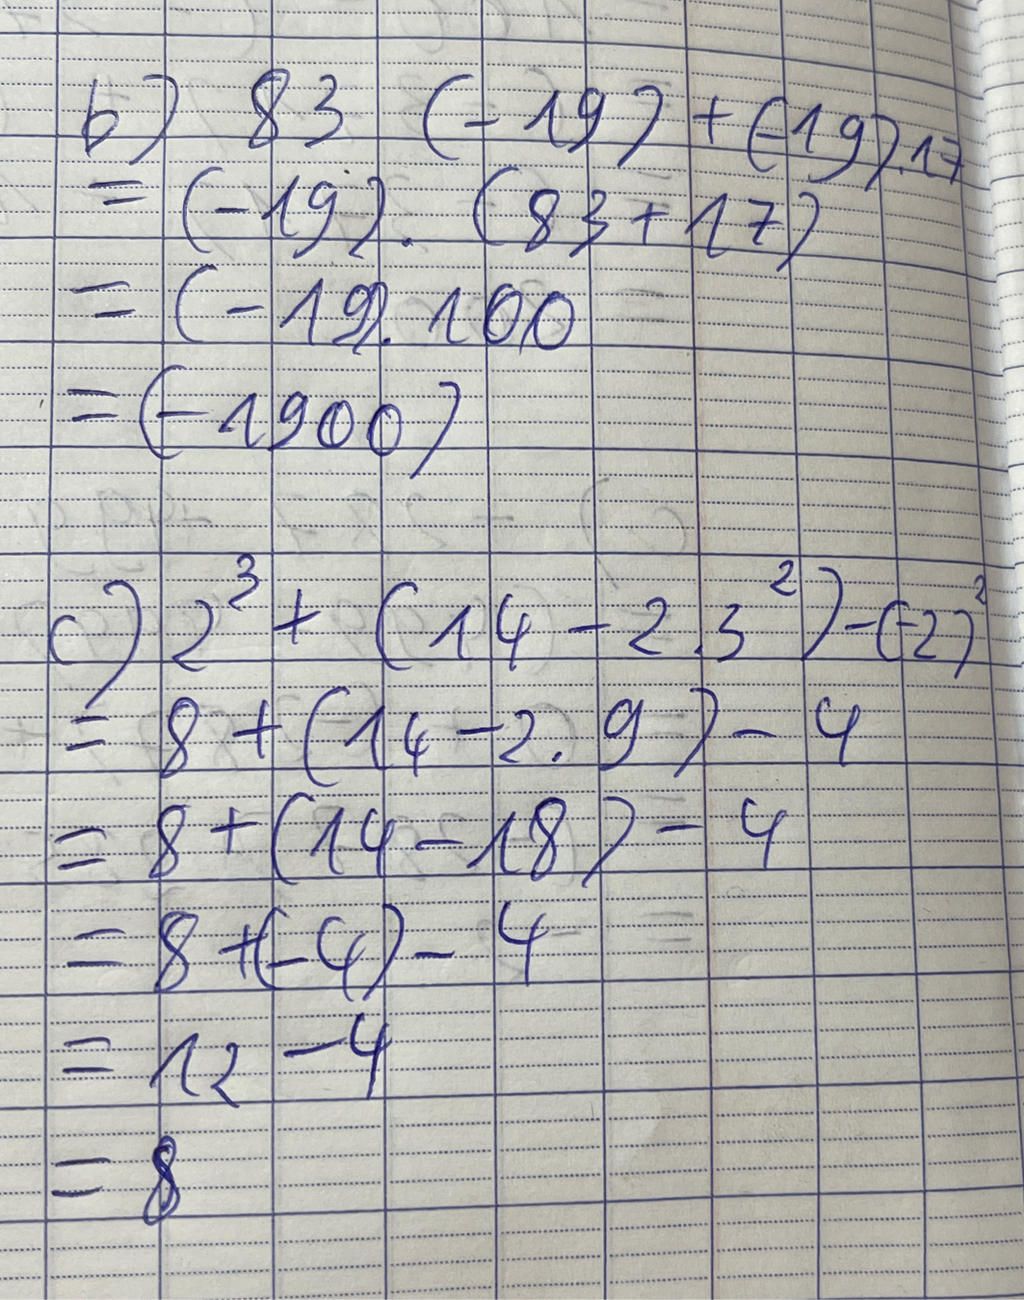 b) 83 (-19) + (-19).17
= (-19). (83+17)
= (-19). 100
= (-1900)
c) 2³ + (14 - 2.3²) - (-2)²
= 8 + (14 - 2. 9) - 4
= 8 + (14 - 18) - 4
= 8 + (-4) - 4
= 12 - 4
= 8